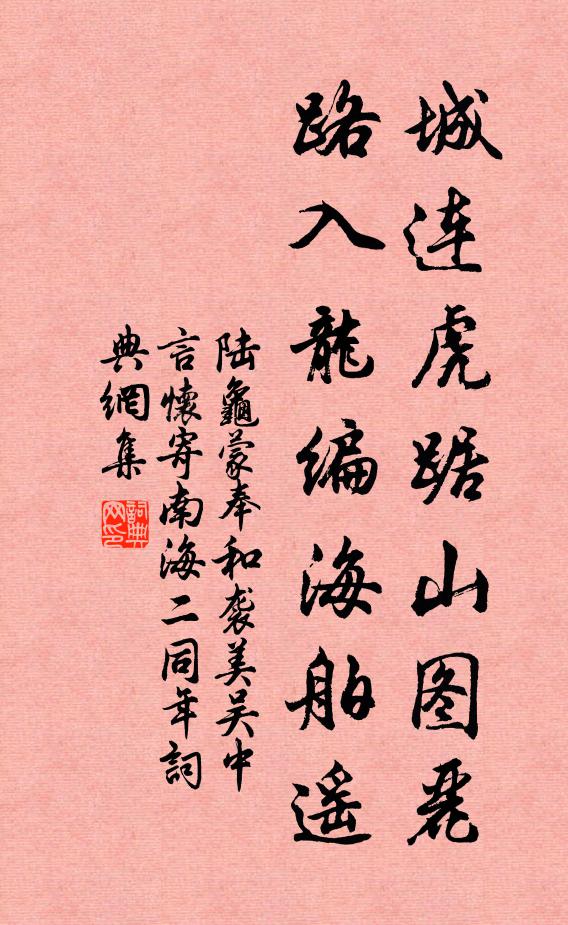 城连虎踞山图丽
路入龙编海舶遥
陆龜蒙奉和袭美吴中
言懷寄南海二同年詞
典網集
詞典网印